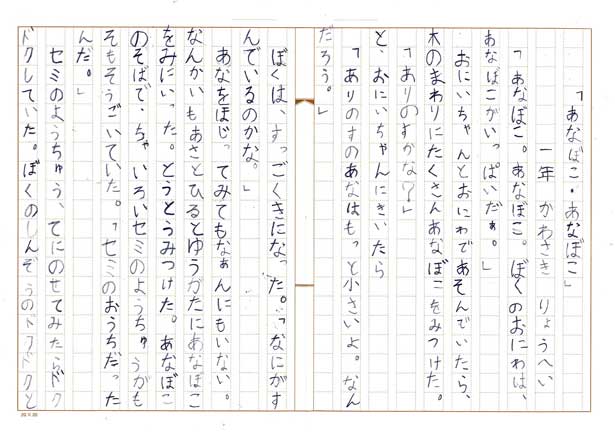 「あなぼこ・あなぼこ」
一年　かわさき　りょうへい
「あなぼこ。あなぼこ。ぼくのおにわは、
あなぼこがいっぱいだぁ。」
おにいちゃんとおにわであそんでいたら、
木のまわりにたくさんあなぼこをみつけた。
「ありのすかな？」
と、おにいちゃんにきいたら
「ありのすのあなはもっと小さいよ。なん
だろう。」
ぼくは、すっごくきになった。「なにがす
んでいるのかな。」
あなをほじってみてもなぁんにもいない。
なんかいもあさとひるとゆうがたにあなぼこ
をみにいった。とうとうみつけた。あなぼこ
のそばで、ちゃいろいセミのようちゅうがも
そもそうごいていた。「セミのおうちだった
んだ。」
セミのようちゅう、てにのせてみたらドク
ドクしていた。ぼくのしんぞうのドクドクと
20×20